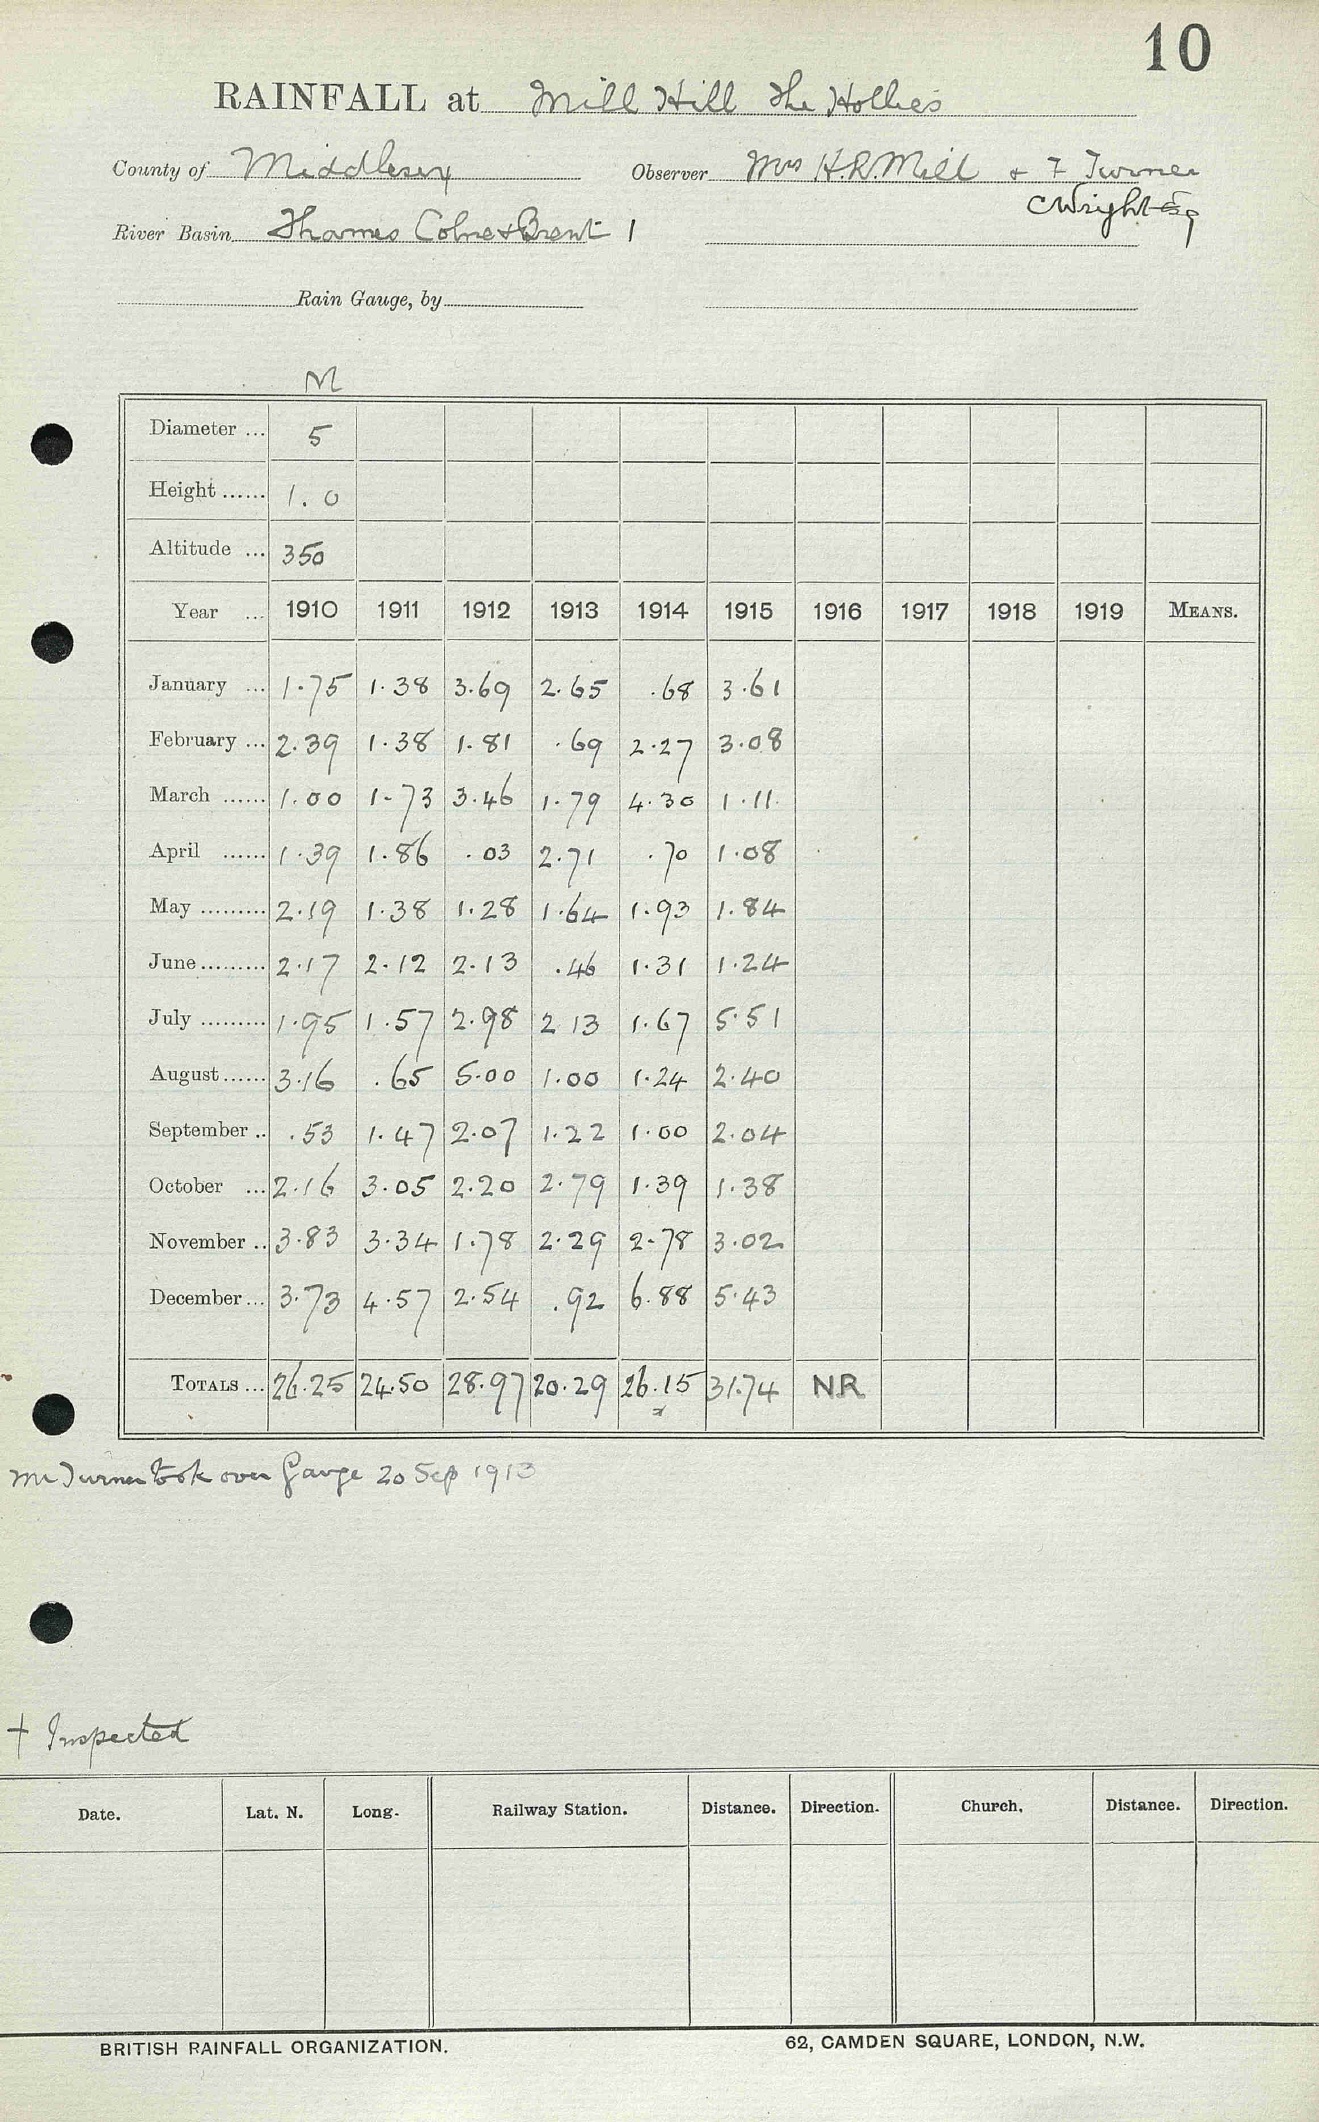 10
RAINFALL at Mill Hill The Hollies
County of Middlesex Observer Mrs H.R. Mill & F Turner
C Wright Esq
River Basin Thames Colne & Brent 1
Rain Gauge, by
M
Diameter ... 5
Height ...... 1.0
Altitude ... 350
Year ... 1910 1911 1912 1913 1914 1915 1916 1917 1918 1919 MEANS.
January ... 1.75 1.38 3.69 2.65 .68 3.61
February ... 2.39 1.38 1.81 .69 2.27 3.08
March ...... 1.00 1.73 3.46 1.79 4.30 1.11
April ...... 1.39 1.86 .03 2.71 .70 1.08
May ......... 2.19 1.38 1.28 1.64 1.93 1.84
June ......... 2.17 2.12 2.13 .46 1.31 1.24
July ......... 1.95 1.57 2.98 2 13 1.67 5.51
August ...... 3.16 .65 5.00 1.00 1.24 2.40
September .. .53 1.47 2.07 1.22 1.00 2.04
October ... 2.16 3.05 2.20 2.79 1.39 1.38
November .. 3.83 3.34 1.78 2.29 2.78 3.02
December ... 3.73 4.57 2.54 .92 6.88 5.43
TOTALS ... 26.25 24.50 28.97 20.29 26.15 31.74 NR
Mr Turner took over Gauge 20 Sep 1913
† Inspected
Date. Lat. N. Long. Railway Station. Distance. Direction. Church. Distance. Direction.
BRITISH RAINFALL ORGANIZATION. 62, CAMDEN SQUARE, LONDON, N.W.